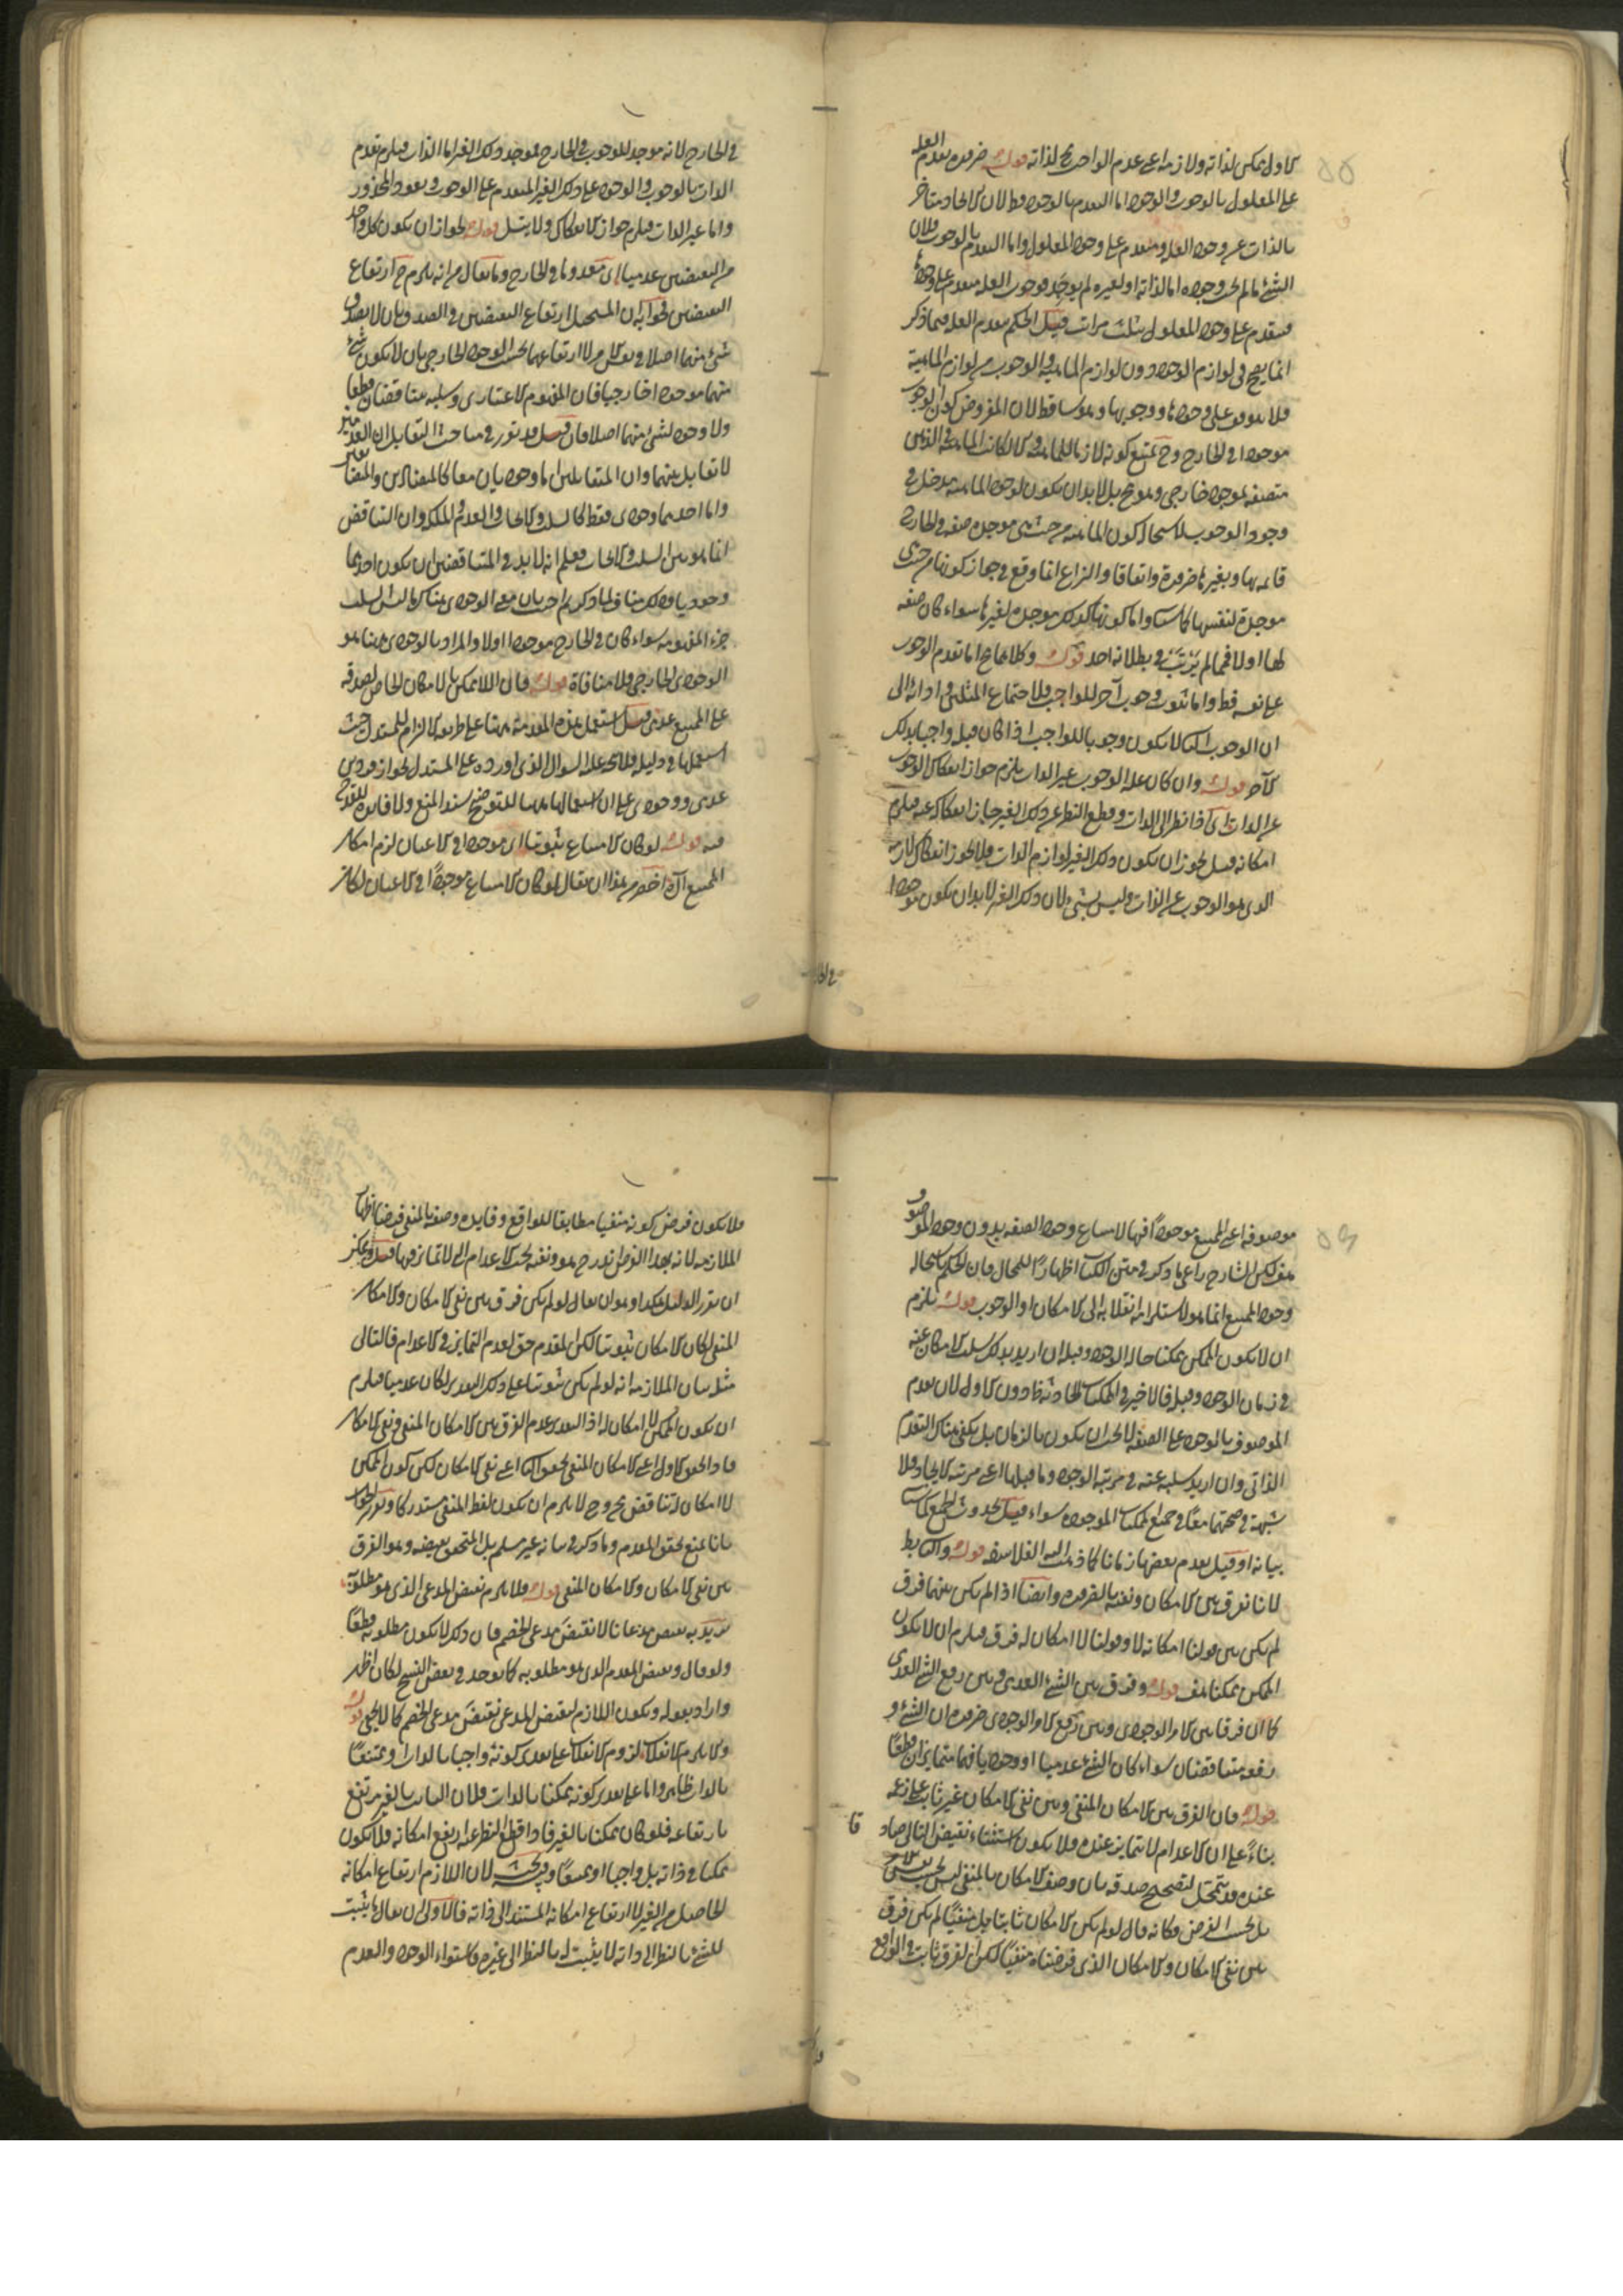 الاول ممكن لذاته ولازمه اعنى عدم الواجب مح لذاته قوله ضرورة تقدم العلة
على المعلول بالوجوب والوجود اما التقدم بالوجود فط لان الايجاد متأخر
بالذات عن وجود العلة ومتقدم على وجود المعلول واما التقدم بالوجوب فلان
الشئ ما لم يجب وجوده اما لذاته او لغيره لم يوجد فوجوب العلة متقدم على وجودها
فيتقدم على وجود المعلول بثلث مراتب قيل الحكم بتقدم العلة فيما ذكر
انما يصح فى لوازم الوجود دون لوازم الماهية والوجوب من لوازم الماهية
فلا يتوقف على وجودها ووجوبها وهو ساقط لان المفروض كون الوجوب
موجودا فى الخارج وح يمتنع كونه لازما للماهية والا لكانت الماهية فى الذهن
متصفة بموجود خارجى وهو مح بل لا بد ان يكون لوجود الماهية مدخل فى
وجود الوجوب لاستحالة كون الماهية من حيث هى موجدة صفة فى الخارج
قائمة بها وبغيرها ضرورة واتفاقا والنزاع انما وقع فى جواز كونها من حيث هى
موجدة لنفسها كما سيأتى واما كونها كذلك موجدة لغيرها سواء كان صفة
لها او لا فمما لم يرتب فى بطلانه احد قوله وكلاهما مح اما تقدم الوجوب
على نفسه فط واما ثبوت وجوب آخر للواجب فلاجتماع المثلين وادائه الى
ان الوجوب الثانى لا يكون وجوبا للواجب اذا كان قبله واجبا بذلك
الآخر قوله وان كان علة الوجوب غير الذات يلزم جواز انفكاك الوجوب
عن الذات اى اذا نظر الى الذات وقطع النظر عن ذلك الغير جاز انفكاكه عنه فيلزم
امكانه قيل يجوز ان يكون ذلك الغير لوازم الذات فلا يجوز انفكاك لازمه
الذى هو الوجوب عن الذات وليس بشئ لان ذلك الغير لا بد ان يكون موجودا
فى الخارج لانه موجد للوجوب فى الخارج فموجد ذلك الغير اما الذات فيلزم تقدم
الذات بالوجوب والوجود على ذلك الغير المتقدم على الوجوب ويعود المحذور
واما غير الذات فيلزم جواز الانفكاك ولا يتسلسل قوله لجواز ان يكون كل واحد
من النقيضين عدميا اى معدوما فى الخارج وما يقال من انه يلزم ح ارتفاع
النقيضين فجوابه ان المستحيل ارتفاع النقيضين فى الصدق بان لا يصدق
شئ منهما اصلا لا ارتفاعهما بحسب الوجود الخارجى بان لا يكون شئ
منهما موجودا خارجيا فان المفهوم الاعتبارى وسلبه متناقضان قطعا
ولا وجود لشئ منهما اصلا فان قيل قد تقرر فى مباحث التقابل ان العدميين
لا تقابل بينهما وان المتقابلين اما وجوديان معا كالمتضادين والمتضايفين
واما احدهما وجودى فقط كالسلب والايجاب والعدم والملكة وان التناقض
انما هو بين السلب والايجاب فعلم انه لا بد فى المتناقضين ان يكون احدهما
وجوديا وذلك مناف لما ذكرتم اجيب بان معنى الوجودى هناك ما ليس السلب
جزء المفهومه سواء كان فى الخارج موجودا او لا والمراد بالوجودى ههنا هو
الوجودى الخارجى فلا منافاة قوله فان اللاممكن بالامكان الخاص لصدقه
على الممتنع عدمى قيل استعمل هذه المقدمة ههنا على طريقة الالزام للمستدل حيث
استعملها فى دليله فلا يتجه عليه السؤال الذى اورده على المستدل لجواز فردين
عدمى ووجودى على ان استعمالها ههنا للتوضيح سند المنع ولا فايدة للقدح
فيه قوله لو كان الامتناع ثبوتيا اى موجودا فى الاعيان لزم امكان
الممتنع آه اخصر من هذا ان يقال لو كان الامتناع موجودا فى الاعيان لكان
موصوفه اعنى الممتنع موجودا فيها لامتناع وجود الصفة بدون وجود الموصوف
هف لكن الشارح راعى ما ذكر فى متن الكتاب اظهارا للمحال فان الحكم باستحالة
وجود الممتنع انما هو لاستلزامه انقلابه الى الامكان او الوجوب قوله يلزم
ان لا يكون الممكن ممكنا حالة الوجود وقبله ان اريد بذلك سلب الامكان عنه
فى زمان الوجود وقبله فالاخير فى الممكنات الحادثة ظ دون الاول لان تقدم
الموصوف بالوجود على الصفة لا يجب ان يكون بالزمان بل يكفى هناك التقدم
الذاتى وان اريد سلبه عنه فى مرتبة الوجود وما قبلها اعنى مرتبة الايجاد فلا
شبهة فى صحتهما معا فى جميع الممكنات الموجودة سواء قيل بحدوث الجميع كما سيأتى
بيانه او قيل بقدم بعضها زمانا كما ذهب اليه الفلاسفة قوله والتالى بط
لانا نفرق بين الامكان ونفيه بالضرورة وايضا اذا لم يكن بينهما فرق
لم يكن بين قولنا امكانه لا وقولنا لا امكان له فرق فيلزم ان لا يكون
الممكن ممكنا هف قوله وفرق بين الشئ العدمى وبين رفع الشئ العدمى
كما ان فرقا بين الامر الوجودى وبين رفع الامر الوجودى ضرورة ان الشئ و
رفعه متناقضان سواء كان الشئ عدميا او وجوديا فهما متمايزان قطعا
قوله فان الفرق بين الامكان المنفى وبين نفى الامكان غير ثابت على زعمه
بناء على ان الاعدام لا تمايز عنده فلا يكون استثناء نقيض التالى صادقا
عنده وقد يتمحل لتصحيح صدقه بان وصف الامكان بالمنفى ليس بحسب نفس الامر
بل بحسب الفرض فكانه قال لو لم يكن الامكان ثابتا بل منفيا لم يكن فرق
بين نفى الامكان والامكان الذى فرضناه منفيا لكن الفرق ثابت فى الواقع
فلا يكون فرض كونه منفيا مطابقا للواقع وفايدة وصفه بالمنفى فرضا اظهار
الملازمة لانه بهذا الفرض اندرج هو ونفيه تحت الاعدام التى لا تمايز فيها قيل ويمكن
ان يقرر الدليل هكذا وهو ان يقال لو لم يكن فرق بين نفى الامكان والامكان
المنفى لكان الامكان ثبوتيا لكن المقدم حق لعدم التمايز فى الاعدام فالتالى
مثله بيان الملازمة انه لو لم يكن ثبوتيا على ذلك التقدير لكان عدميا فيلزم
ان يكون الممكن لا امكان له اذ التقدير عدم الفرق بين الامكان المنفى ونفى الامكان
فاذا تحقق الاول اعنى الامكان المنفى تحقق الثانى اعنى نفى الامكان لكن كون الممكن
لا امكان له تناقض مح وح لا يلزم ان يكون لفظ المنفى مستدركا وتقرير الجواب
بانا نمنع تحقق المقدم وما ذكر فى بيانه غير مسلم بل المتحقق نقيضه وهو الفرق
بين نفى الامكان والامكان المنفى قوله فلا يلزم نقيض المدعى الذى هو مطلوبه
يريد به نقيض مدعانا لا نقيض مدعى الخصم فان ذلك لا يكون مطلوبه قطعا
ولو قال ونقيض المقدم الذى هو مطلوبه كما يوجد فى بعض النسخ لكان اظهر
واراد بقوله ويكون اللازم نقيض المدعى نقيض مدعى الخصم كما لا يخفى قوله
والا يلزم الانقلاب لزوم الانقلاب على تقدير كونه واجبا بالذات او ممتنعا
بالذات ظاهر واما على تقدير كونه ممكنا بالذات فلان الثابت بالغير يرتفع
بارتفاعه فلو كان ممكنا بالغير فاذا قطع النظر عنه ارتفع امكانه فلا يكون
ممكنا فى ذاته بل واجبا او ممتنعا وفيه بحث لان اللازم ارتفاع امكانه
الحاصل من الغير لا ارتفاع امكانه المستند الى ذاته فالاولى ان يقال ما يثبت
للشئ بالنظر الى ذاته لا يثبت له بالنظر الى غيره فاستواء الوجود والعدم